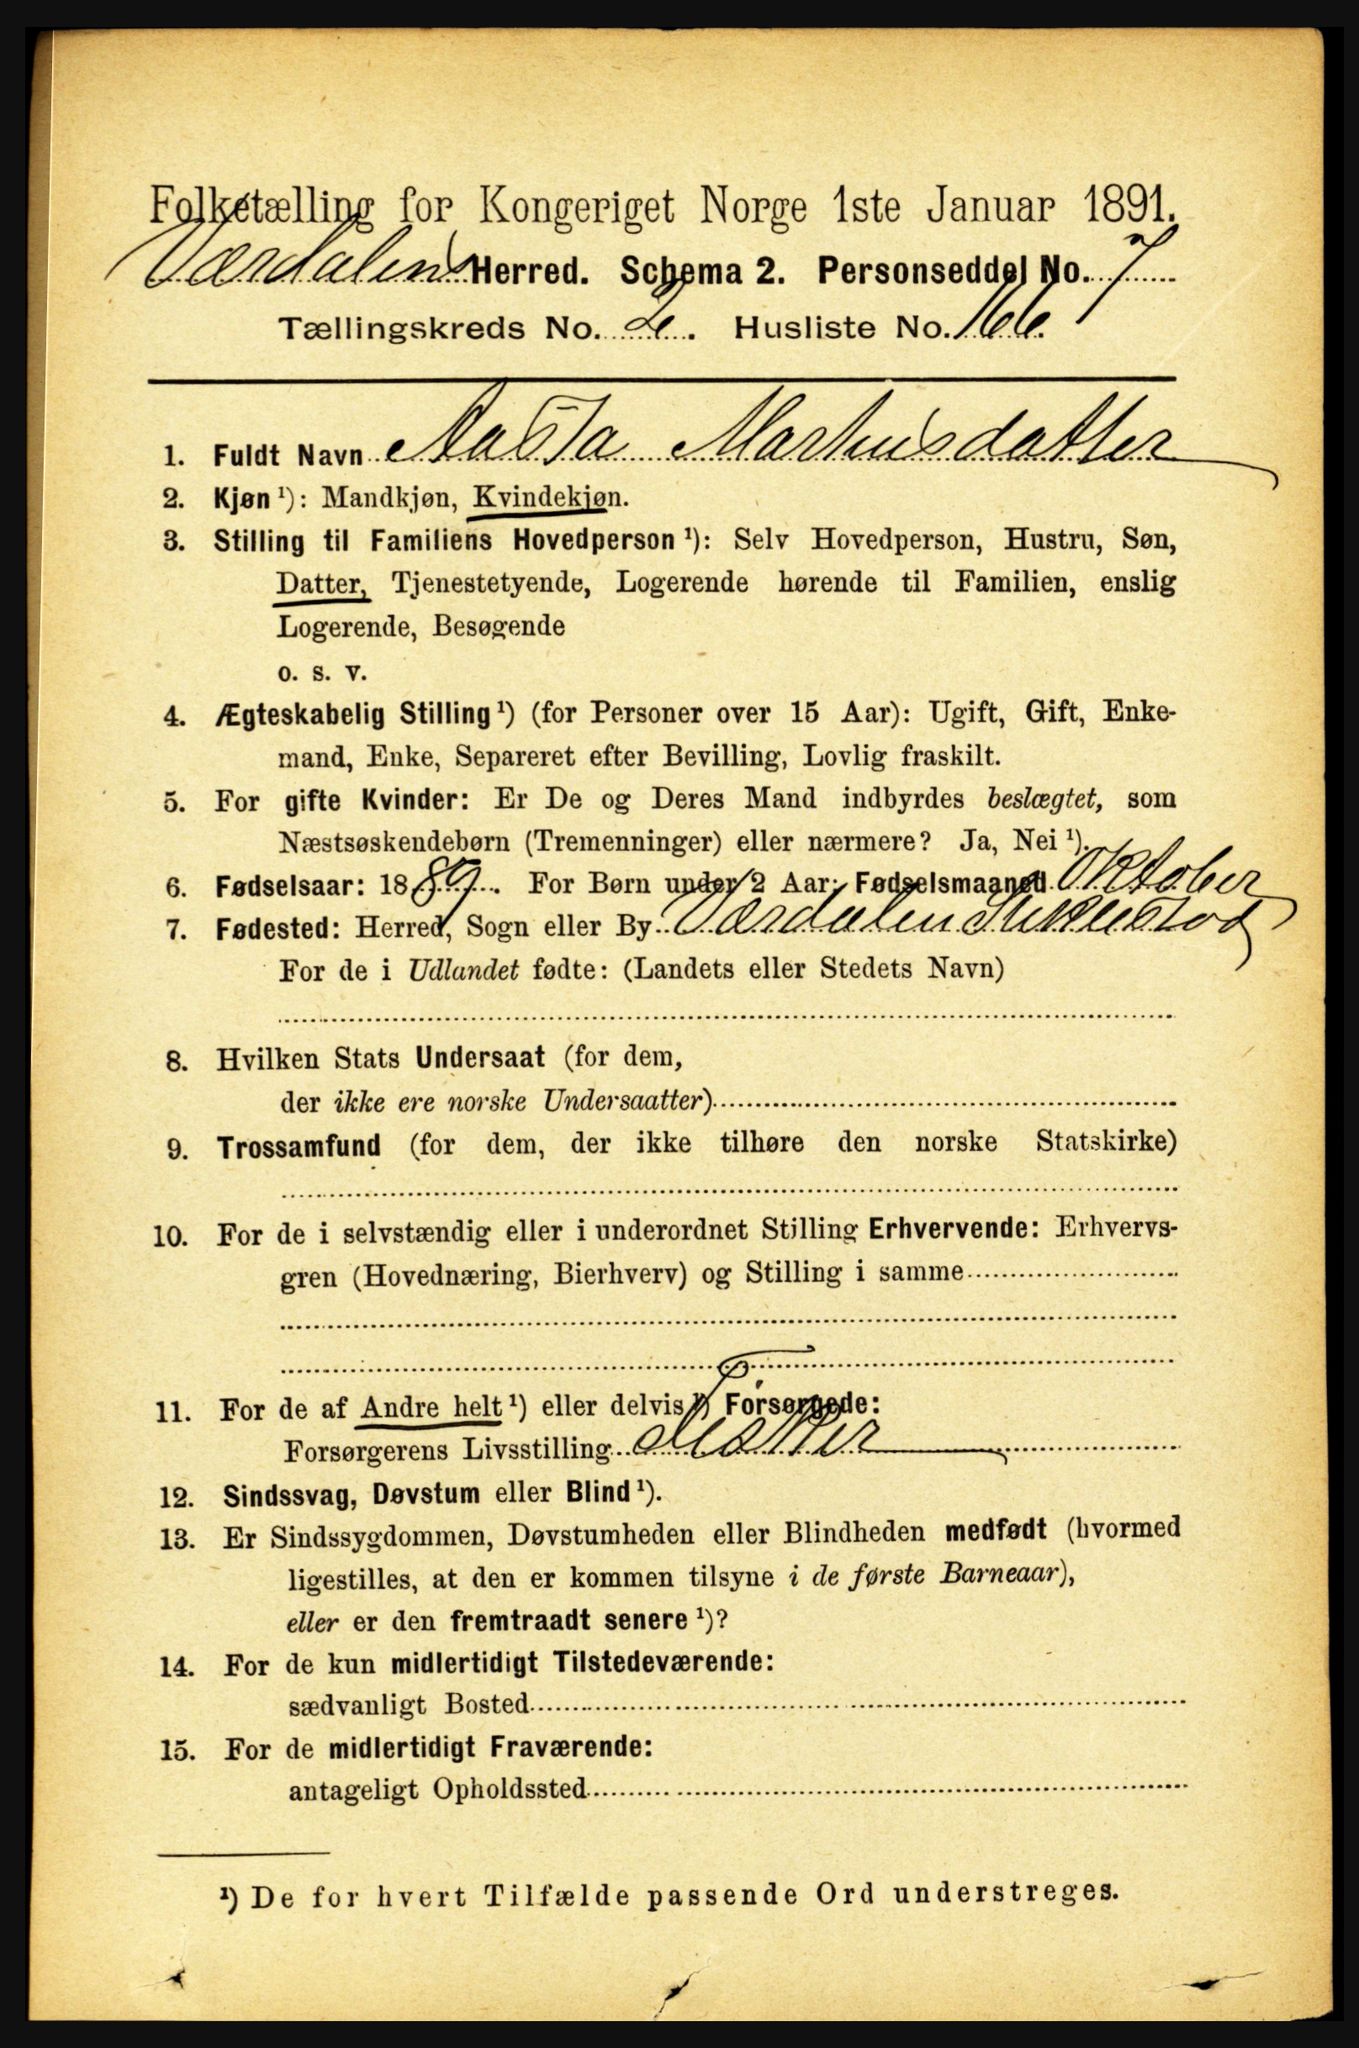 Folketælling for Kongeriget Norge 1ste Januar 1891.
Værdalens Herred. Schema 2. Personseddel No. 7
Tællingskreds No. 2. Husliste No. 166.
1. Fuldt Navn Aasta Martinsdatter
2. Kjøn ¹): Mandkjøn, Kvindekjøn.
3. Stilling til Familiens Hovedperson ¹): Selv Hovedperson, Hustru, Søn,
Datter, Tjenestetyende, Logerende hørende til Familien, enslig
Logerende, Besøgende
o. s. v.
4. Ægteskabelig Stilling ¹) (for Personer over 15 Aar): Ugift, Gift, Enke-
mand, Enke, Separeret efter Bevilling, Lovlig fraskilt.
5. For gifte Kvinder: Er De og Deres Mand indbyrdes beslægtet, som
Næstsøskendebørn (Tremenninger) eller nærmere? Ja, Nei ¹).
6. Fødselsaar: 1889. For Børn under 2 Aar: Fødselsmaaned Oktober
7. Fødested: Herred, Sogn eller By Værdalen Stiklestad
For de i Udlandet fødte: (Landets eller Stedets Navn)
8. Hvilken Stats Undersaat (for dem,
der ikke ere norske Undersaatter)
9. Trossamfund (for dem, der ikke tilhøre den norske Statskirke)
10. For de i selvstændig eller i underordnet Stilling Erhvervende: Erhvervs-
gren (Hovednæring, Bierhverv) og Stilling i samme
11. For de af Andre helt ¹) eller delvis ¹) Forsørgede:
Forsørgerens Livsstilling
12. Sindssvag, Døvstum eller Blind ¹).
13. Er Sindssygdommen, Døvstumheden eller Blindheden medfødt (hvormed
ligestilles, at den er kommen tilsyne i de første Barneaar),
eller er den fremtraadt senere ¹)?
14. For de kun midlertidigt Tilstedeværende:
sædvanligt Bosted
15. For de midlertidigt Fraværende:
antageligt Opholdssted
¹) De for hvert Tilfælde passende Ord understreges.